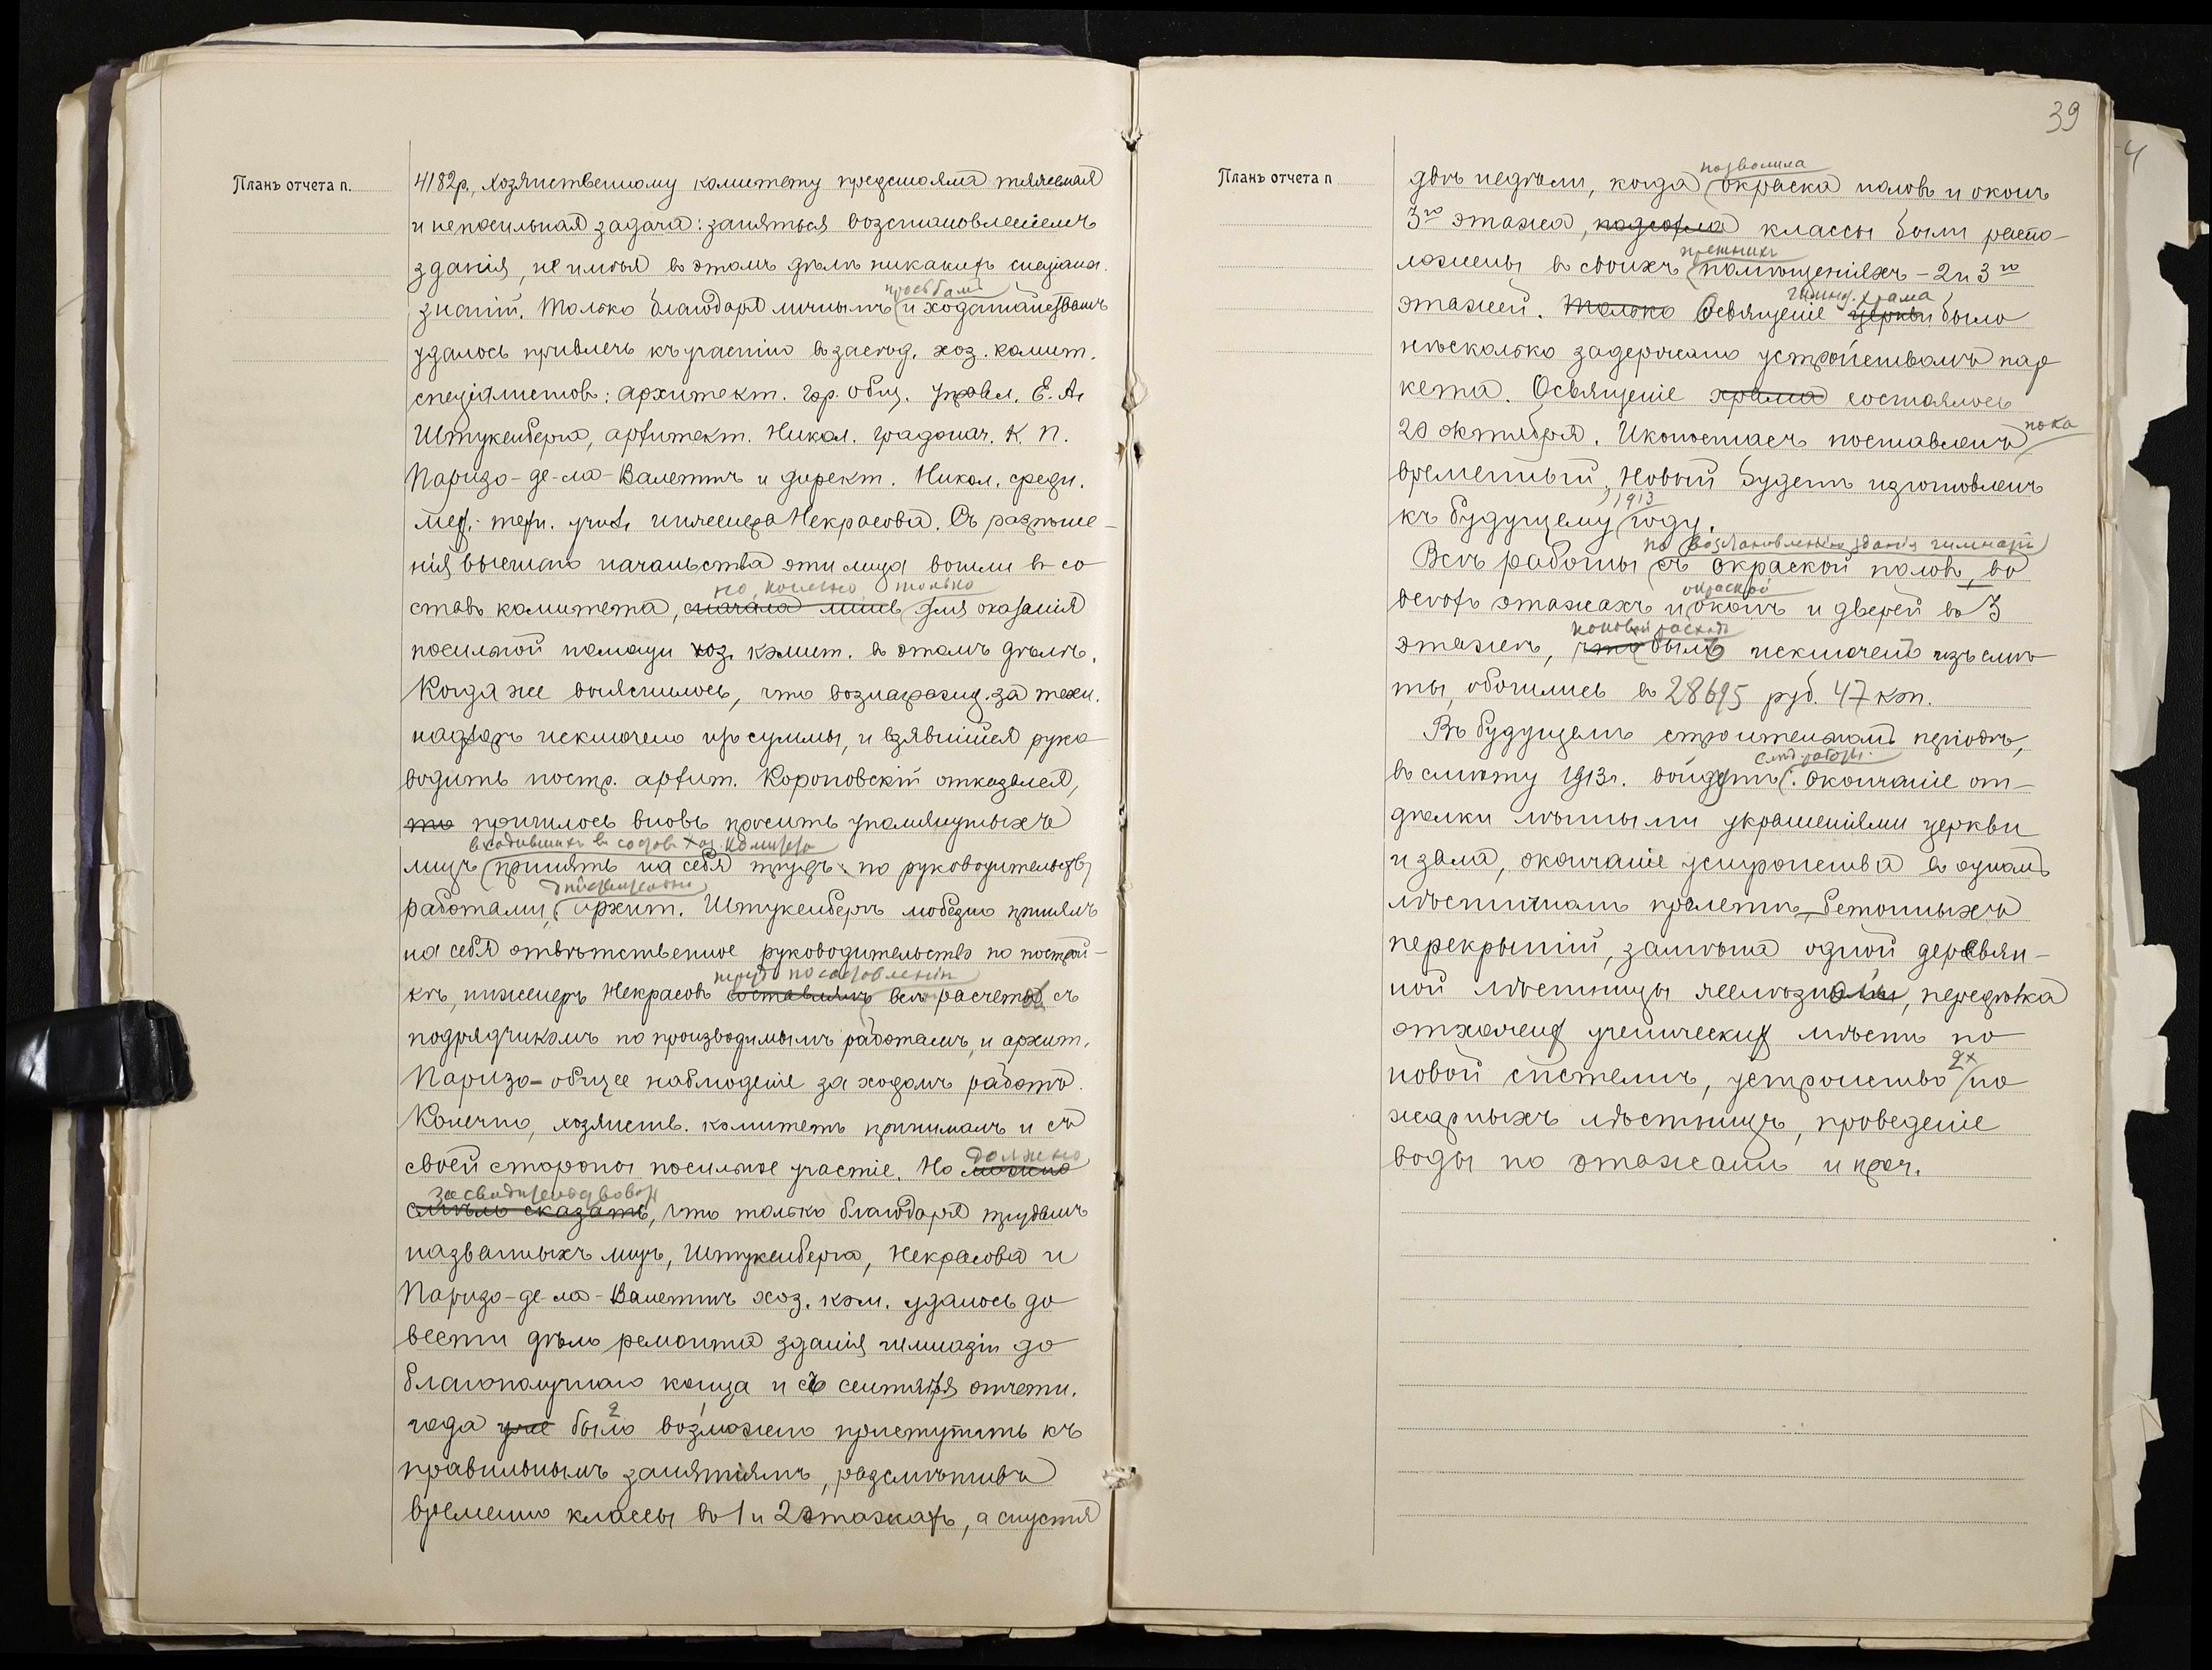 Планъ отчета п.
4182р., хозяйственному комитету предстояла тяжелая
и непосильная задача: заняться возстановленіемъ
зданія, не имѣя въ этомъ дѣлѣ никакихъ спеціал.
просьбамъ
знаній. Только благодаря личнымъ и ходатайствамъ
удалось привлечь къ участію въ засѣд. хоз. комит.
спеціалистовъ: архитект. гор. общ. управл. Е. А.
Штукенберга, архитект. Никол. градонач. К. П.
Паризо-де-ла-Валеттъ и директ. Никол. средн.
мех.-техн. учил. инженера Некрасова. Съ разрѣше-
нія высшаго начальства эти лица вошли въ со
но, конечно, только
ставъ комитета, сначала лишь для оказанія
посильной помощи хоз. комит. въ этомъ дѣлѣ.
Когда же выяснилось, что вознагражд. за техн.
надзоръ исключено изъ суммы, и взявшійся руко
водить постр. архит. Короповскій отказался,
то пришлось вновь просить упомянутыхъ
входившихъ въ составъ хоз. комитета
лицъ принять на себя трудъ по руководительству
работами, архит. Штукенбергъ любезно принялъ
на себя отвѣтственное руководительство по построй-
трудъ по составленію
кѣ, инженеръ Некрасовъ составлялъ всѣ расчеты съ
подрядчикомъ по производимымъ работамъ, и архит.
Паризо - общее наблюденіе за ходомъ работъ.
Конечно, хозяйств. комитетъ принималъ и съ
должно
своей стороны посильное участіе. Но можно
засвидѣтельствовать
смѣло сказать, что только благодаря трудамъ
названныхъ лицъ, Штукенберга, Некрасова и
Паризо-де-ла-Валеттъ хоз. ком. удалось до
вести дѣло ремонта зданія гимназіи до
благополучнаго конца и съ сентября отчетн.
2 1
года уже было возможно приступить къ
правильнымъ занятіямъ, размѣстивъ
временно классы въ 1 и 2 этажахъ, а спустя
39
Планъ отчета п
позволила
двѣ недѣли, когда окраска половъ и оконъ
3го этажа, классы были распо-
прежнихъ
ложены въ своихъ помѣщеніяхъ - 2 и 3го
гимнз. храма
этажей. Только Освященіе церкви было
нѣсколько задержано устройствомъ пар
кета. Освященіе храма состоялось
пока
20 октября. Иконостасъ поставленъ
временный. Новый будетъ изготовленъ
1913
къ будущему году.
по возстановленію зданія гимназіи
Всѣ работы съ окраской половъ, во
окраской
всѣхъ этажахъ и оконъ и дверей въ 3
каковой расходъ
этажѣ, что былъ исключенъ изъ смѣ
ты, обошлись въ 28695 руб. 47 коп.
Въ будущемъ строительномъ періодѣ,
слѣд. работы
въ смѣту 1913г. войдутъ: окончаніе от-
дѣлки лѣпными украшеніями церкви
и зала, окончаніе устройства въ одномъ
лѣстничномъ пролетѣ бетонныхъ
перекрытій, замѣна одной деревян-
ной лѣстницы, передѣлка
отхожихъ ученическихъ мѣстъ по
2х
новой системѣ, устройство по
жарныхъ лѣстницъ, проведеніе
воды по этажамъ и проч.